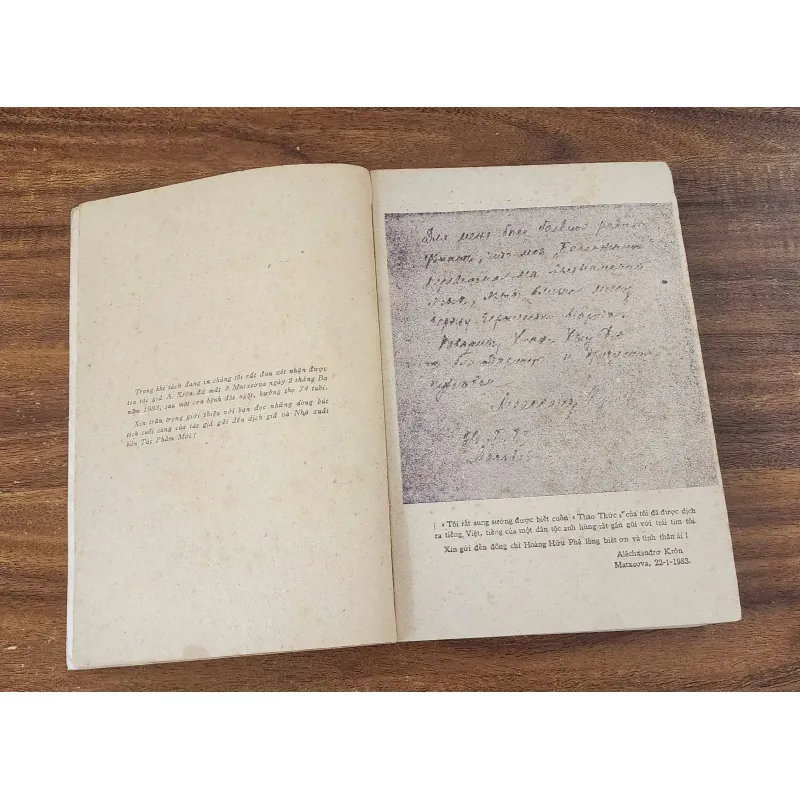 Trong khi sách đang in chúng tôi rất đau xót nhận được
tin tác giả A. Krôn đã mất ở Matxcova ngày 2 tháng Ba
năm 1983, sau một cơn bệnh đột ngột, hưởng thọ 74 tuổi.
Xin trân trọng giới thiệu với bạn đọc những dòng bút
tích cuối cùng của tác giả gửi đến dịch giả và Nhà xuất
bản Tác Phẩm Mới !
Для меня было большой радостью
узнать, что моя „Бессонница"
вьетнамский
язык, язык
сердцу
Товарищу Хоанг Хыу Фе
и
« Tôi rất sung sướng được biết cuốn « Thao Thức » của tôi đã được dịch
ra tiếng Việt, tiếng của một dân tộc anh hùng rất gần gũi với trái tim tôi.
Xin gửi đến đồng chí Hoàng Hữu Phê lòng biết ơn và tình thân ái !
Alêchxanđrơ Krôn
Matxcova, 22-1-1983.